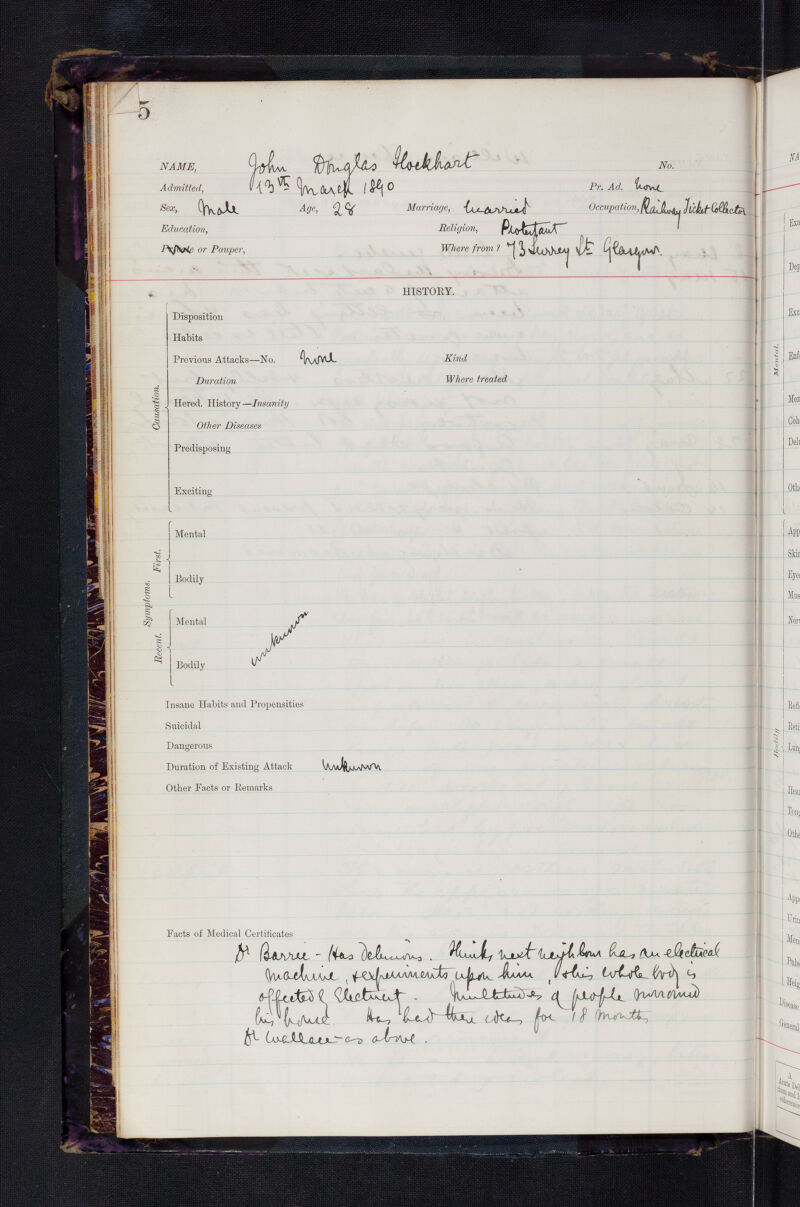 5
NAME, John Douglas Lockhart No.
Admitted, 13th March 1890 Pr. Ad. None
Sex, Male Age, 28 Marriage, Married Occupation, Railway Ticket Collector
Education, Religion, Protestant
Private or Pauper, Where from? 73 Surrey St Glasgow.
HISTORY.
Causation.
Disposition
Habits
Previous Attacks—No. None Kind
Duration Where treated
Hered. History—Insanity
Other Diseases
Predisposing
Exciting
Symptoms.
First.
Mental
Bodily
Recent.
Mental
unknown
Bodily
Insane Habits and Propensities
Suicidal
Dangerous
Duration of Existing Attack Unknown
Other Facts or Remarks
Facts of Medical Certificates
Dr Barrie - Has delusions. Thinks next neighbour has an electrical
machine, & experiments upon him, & his whole body is
affected by Electricity. Multitudes of people surround
his house. Has had these ideas for 18 months
Dr Wallace - as above.
Mental.
Bodily